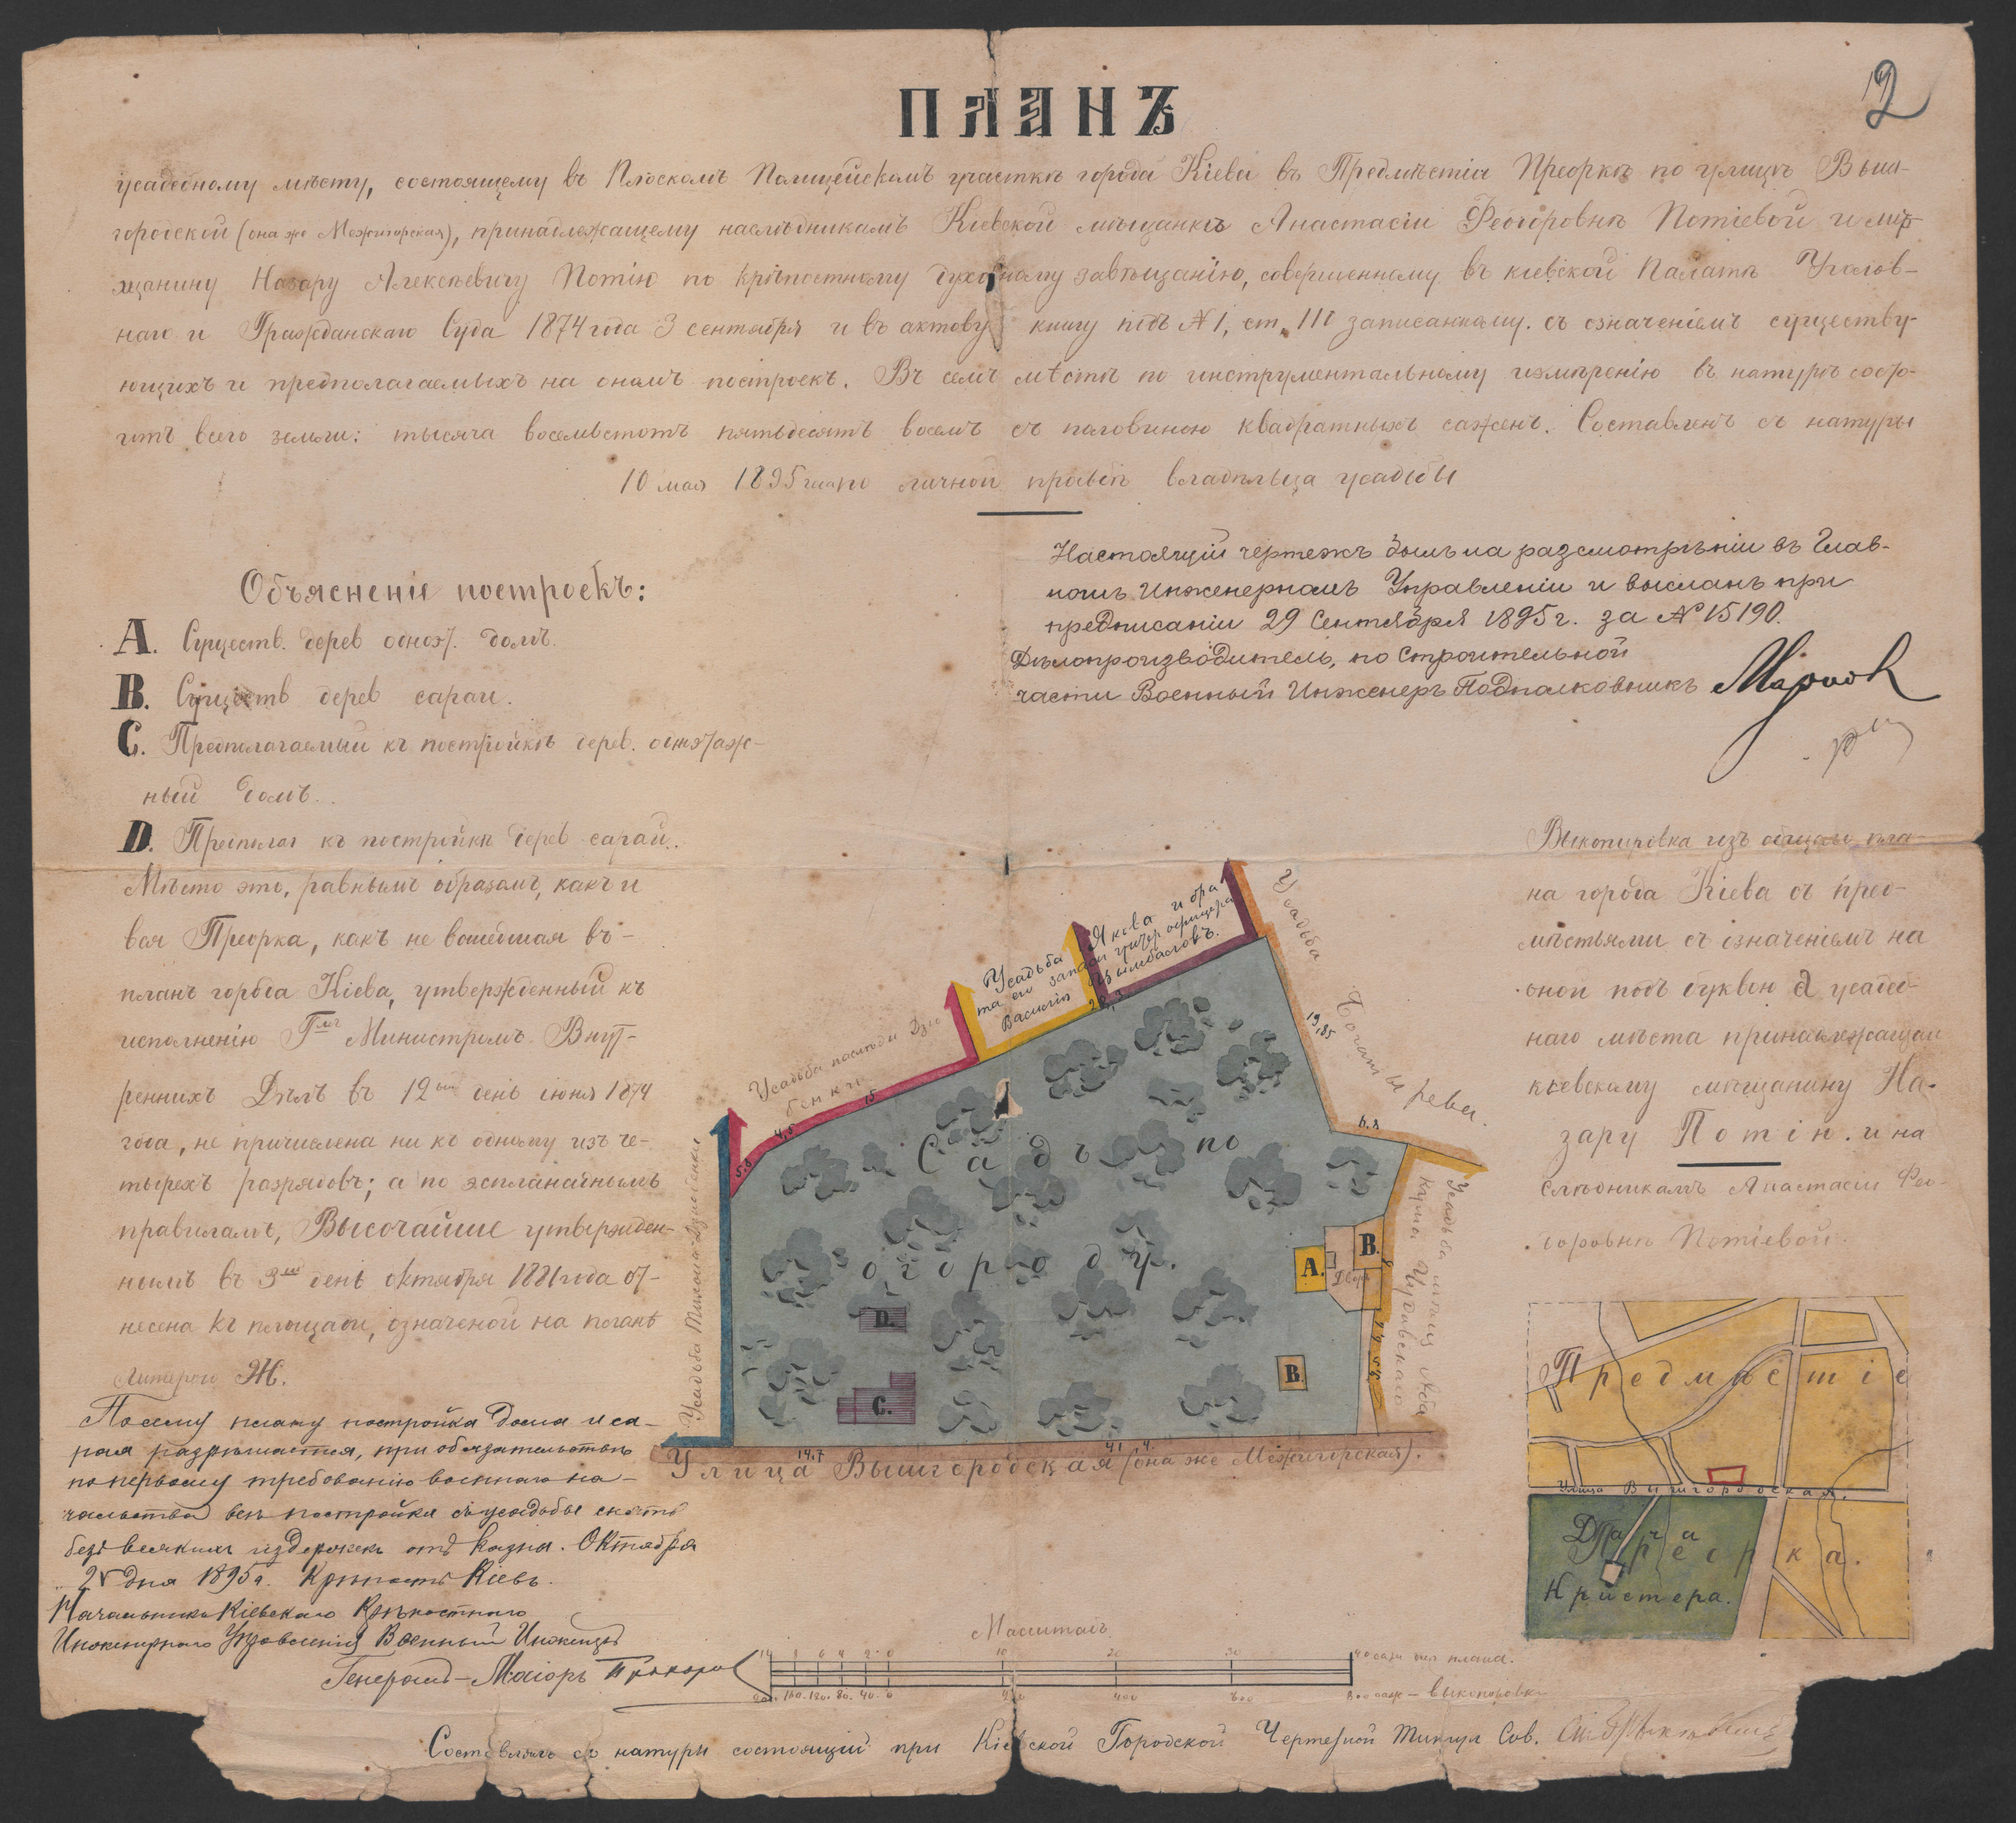 2
ПЛАНЪ
усадебному мѣсту, состоящему въ Плоскомъ Полицейскомъ участкѣ города Кіева въ Предмѣстіи Преоркѣ по улицѣ Выш-
городской (она же Межигорская), принадлежащему наслѣдникамъ Кіевской мѣщанкѣ Анастасіи Феодоровнѣ Потіевой и мѣ-
щанину Назару Алексѣевичу Потію по крѣпостному духовному завѣщанію, совершенному въ кіевской Палатѣ Уголов-
наго и Гражданскаго Суда 1874 года 3 сентября и въ актову книгу подъ №1, ст. 111 записанному. съ означеніемъ существу-
ющихъ и предполагаемыхъ на ономъ построекъ. Въ семъ мѣстѣ по инструментальному измѣренію въ натурѣ состо-
итъ всего земли: тысяча восемьсотъ пятьдесятъ восемъ съ половиною квадратныхъ саженъ. Составленъ съ натуры
10 мая 1895 года по личной прозьбѣ владѣльца усадьбы
Настоящій чертежъ былъ на разсмотрѣніи въ Глав-
номъ Инженерномъ Управленіи и высланъ при
предписаніи 29 Сентября 1895 г. за № 15190.
Дѣлопроизводитель, по Строительной
части Военный Инженеръ Подполковникъ
Объясненіе построекъ:
A. Существ. дерев одноэт. домъ.
B. Существ дерев сараи.
C. Предполагаемый къ постройкѣ дерев. одноэтаж-
ный домъ.
D. Предполаг къ постройкѣ дерев сарай.
Мѣсто это, равнымъ образомъ, какъ и
вся Преорка, какъ не вошедшая въ
планъ города Кіева, утвержденный къ
исполненію Г-мъ Министромъ Внут-
реннихъ Дѣлъ въ 12ый день іюня 1874
года, не причислена ни къ одному изъ че-
тырехъ разрядовъ; а по эспланаднымъ
правиламъ, Высочайше утвержден-
нымъ въ 3ій день октября 1881 года от-
несена къ площади, означеной на планѣ
Литерою Ж.
По сему плану постройка дома и са-
рая разрѣшается, при обязательствѣ
по первому требованію военнаго на-
чальства всѣ постройки съ усадьбы снести
безъ всякихъ издержекъ отъ казны. Октября
дня 1895 г. Крѣпость Кіевъ.
Начальникъ Кіевскаго Крѣпостного
Инженернаго Управленія Военный Инженеръ
Генералъ-Маіоръ
Выкопировка изъ общаго пла-
на города Кіева съ пред-
мѣстьями съ означеніемъ на
оной подъ буквою а усадеб-
наго мѣста принадлежащаго
кіевскому мѣщанину На-
зару Потію. и на
слѣдникамъ Анастасіи Фео-
доровнѣ Потіевой.
Усадьба Якова и бра
та его запаси унтер офицера
Василія Цымбаловъ.
Усадьба
Богатырева.
19,85
6,8
15
4,5
5,8
Садъ по
огороду.
A.
B.
Дворъ
B.
D.
C.
14,7
41
Улица Вышгородская (она же Межигорская).
Предмѣстіе
Улица Вышгородская.
Дача
Преорка.
Кристера.
Масштабъ
10 8 6 4 2 0 10 20 30 40 саж для плана.
200 160 120 80 40 0 400 600 800 саж - выкопировки
Составлялъ съ натуры состоящій при Кіевской Городской Чертежной Титул Сов.